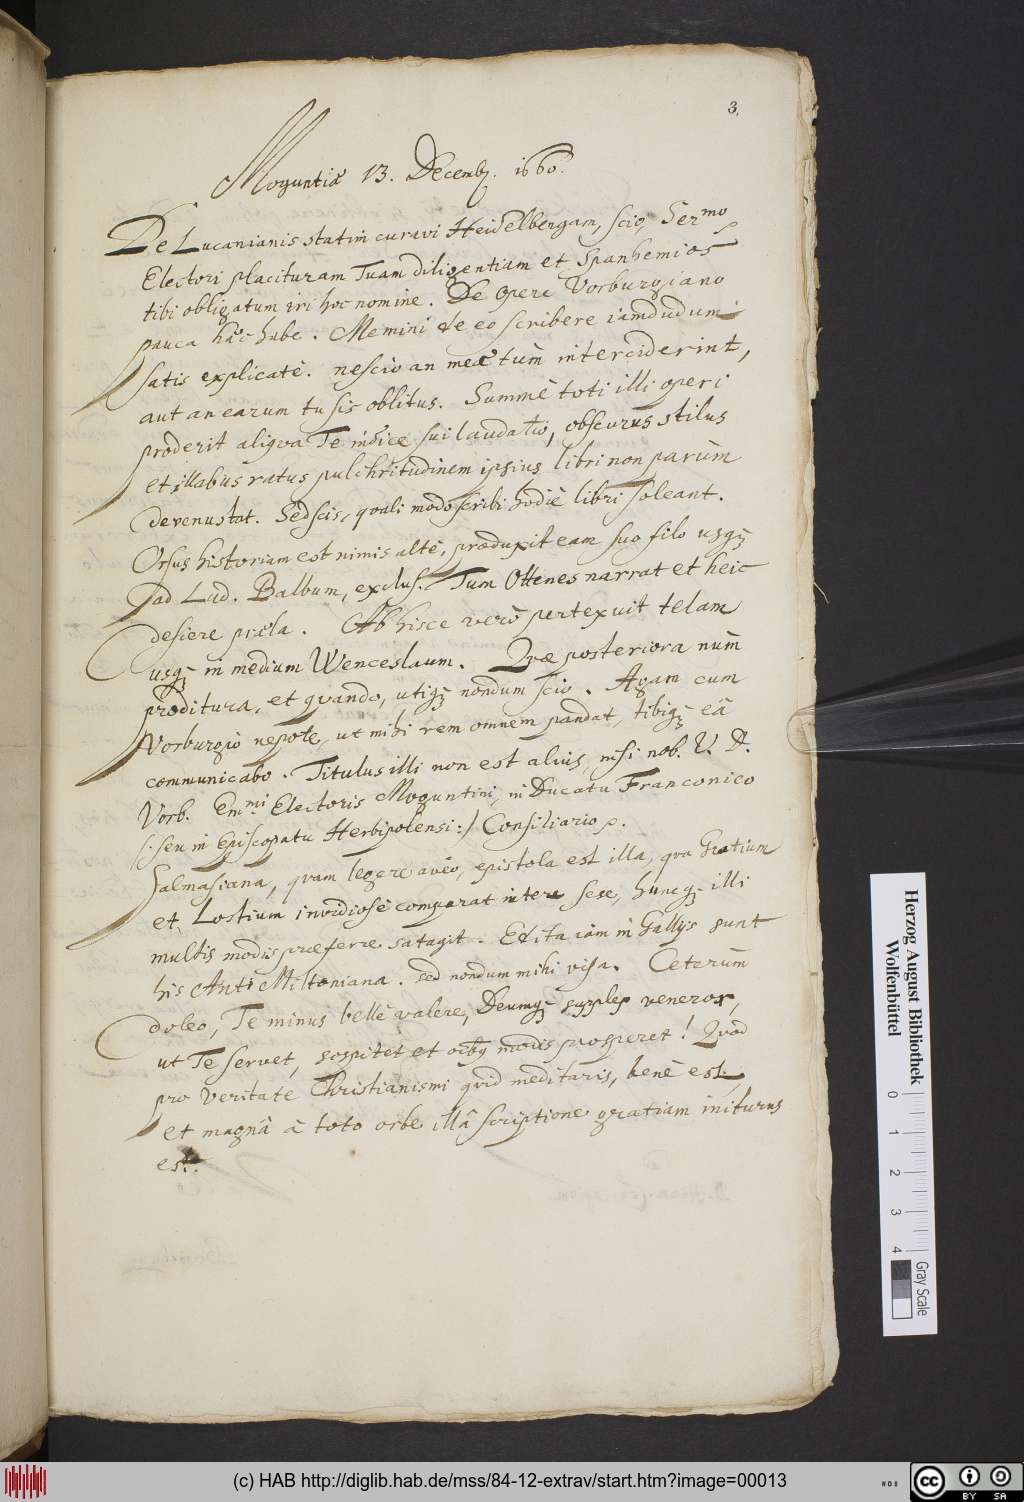 3.
Moguntiæ 13. Decemb. 1660.
De Lucanianis statim curavi Heidelbergam, scio, Ser.mo
Electori placituram Tuam diligentiam et Spanhemios
tibi obligatum iri hoc nomine. De Opere Vorburgiano
pauca hæc habe. Memini de eo scribere iamdudum
satis explicatè. nescio an meæ tùm interciderint,
aut an earum tu sis oblitus. Summè toti illi operi
proderit aliqva Te indice sui laudatio, obscurus stilus
et pulchritudinem ipsius libri non parùm
devenustat. Sed scis, quali modo scribi hodiè libri soleant.
Orsus historiam est nimis altè, produxit eam suo filo usq3
ad Lud. Balbum, exclus. Tum Ottenes narrat et heic
desiere præla. Ab hisce verò pertexuit telam
usq3 in medium Wenceslaum. Qvæ posteriora nùm
proditura, et qvando, utiq3 nondum scio. Agam cum
Vorburgio nepote, ut mihi rem omnem pandat, tibiq3 eâ
communicabo. Titulus illi non est alius, nisi nob. V. D.
Vorb. Em.mi Electoris Moguntini, in Ducatu Franconico
(: seu in Episcopatu Herbipolensi :) Consiliario
Salmasiana, qvam legere aveo, epistola est illa, qva Gratium
et Lostium invidiosè comparat inter se se, huncq3 illi
multis modis præferre satagit. Edita iàm in Gallijs sunt
his Anti Miltoniana. sed nondum mihi visa. Ceterùm
doleo, Te minus bellè valere, Deumq3 supplex veneror,
ut Te servet, sospitet et oibq modis prosperet! Qvod
pro Veritate Christianismi qvid meditaris, benè est,
et magnâ à toto orbe illâ scriptione gratiam initurus
est.
Herzog August Bibliothek
Wolfenbüttel
0 1 2 3 4
Gray Scale
(c) HAB http://diglib.hab.de/mss/84-12-extrav/start.htm?image=00013
WDB
cc BY SA